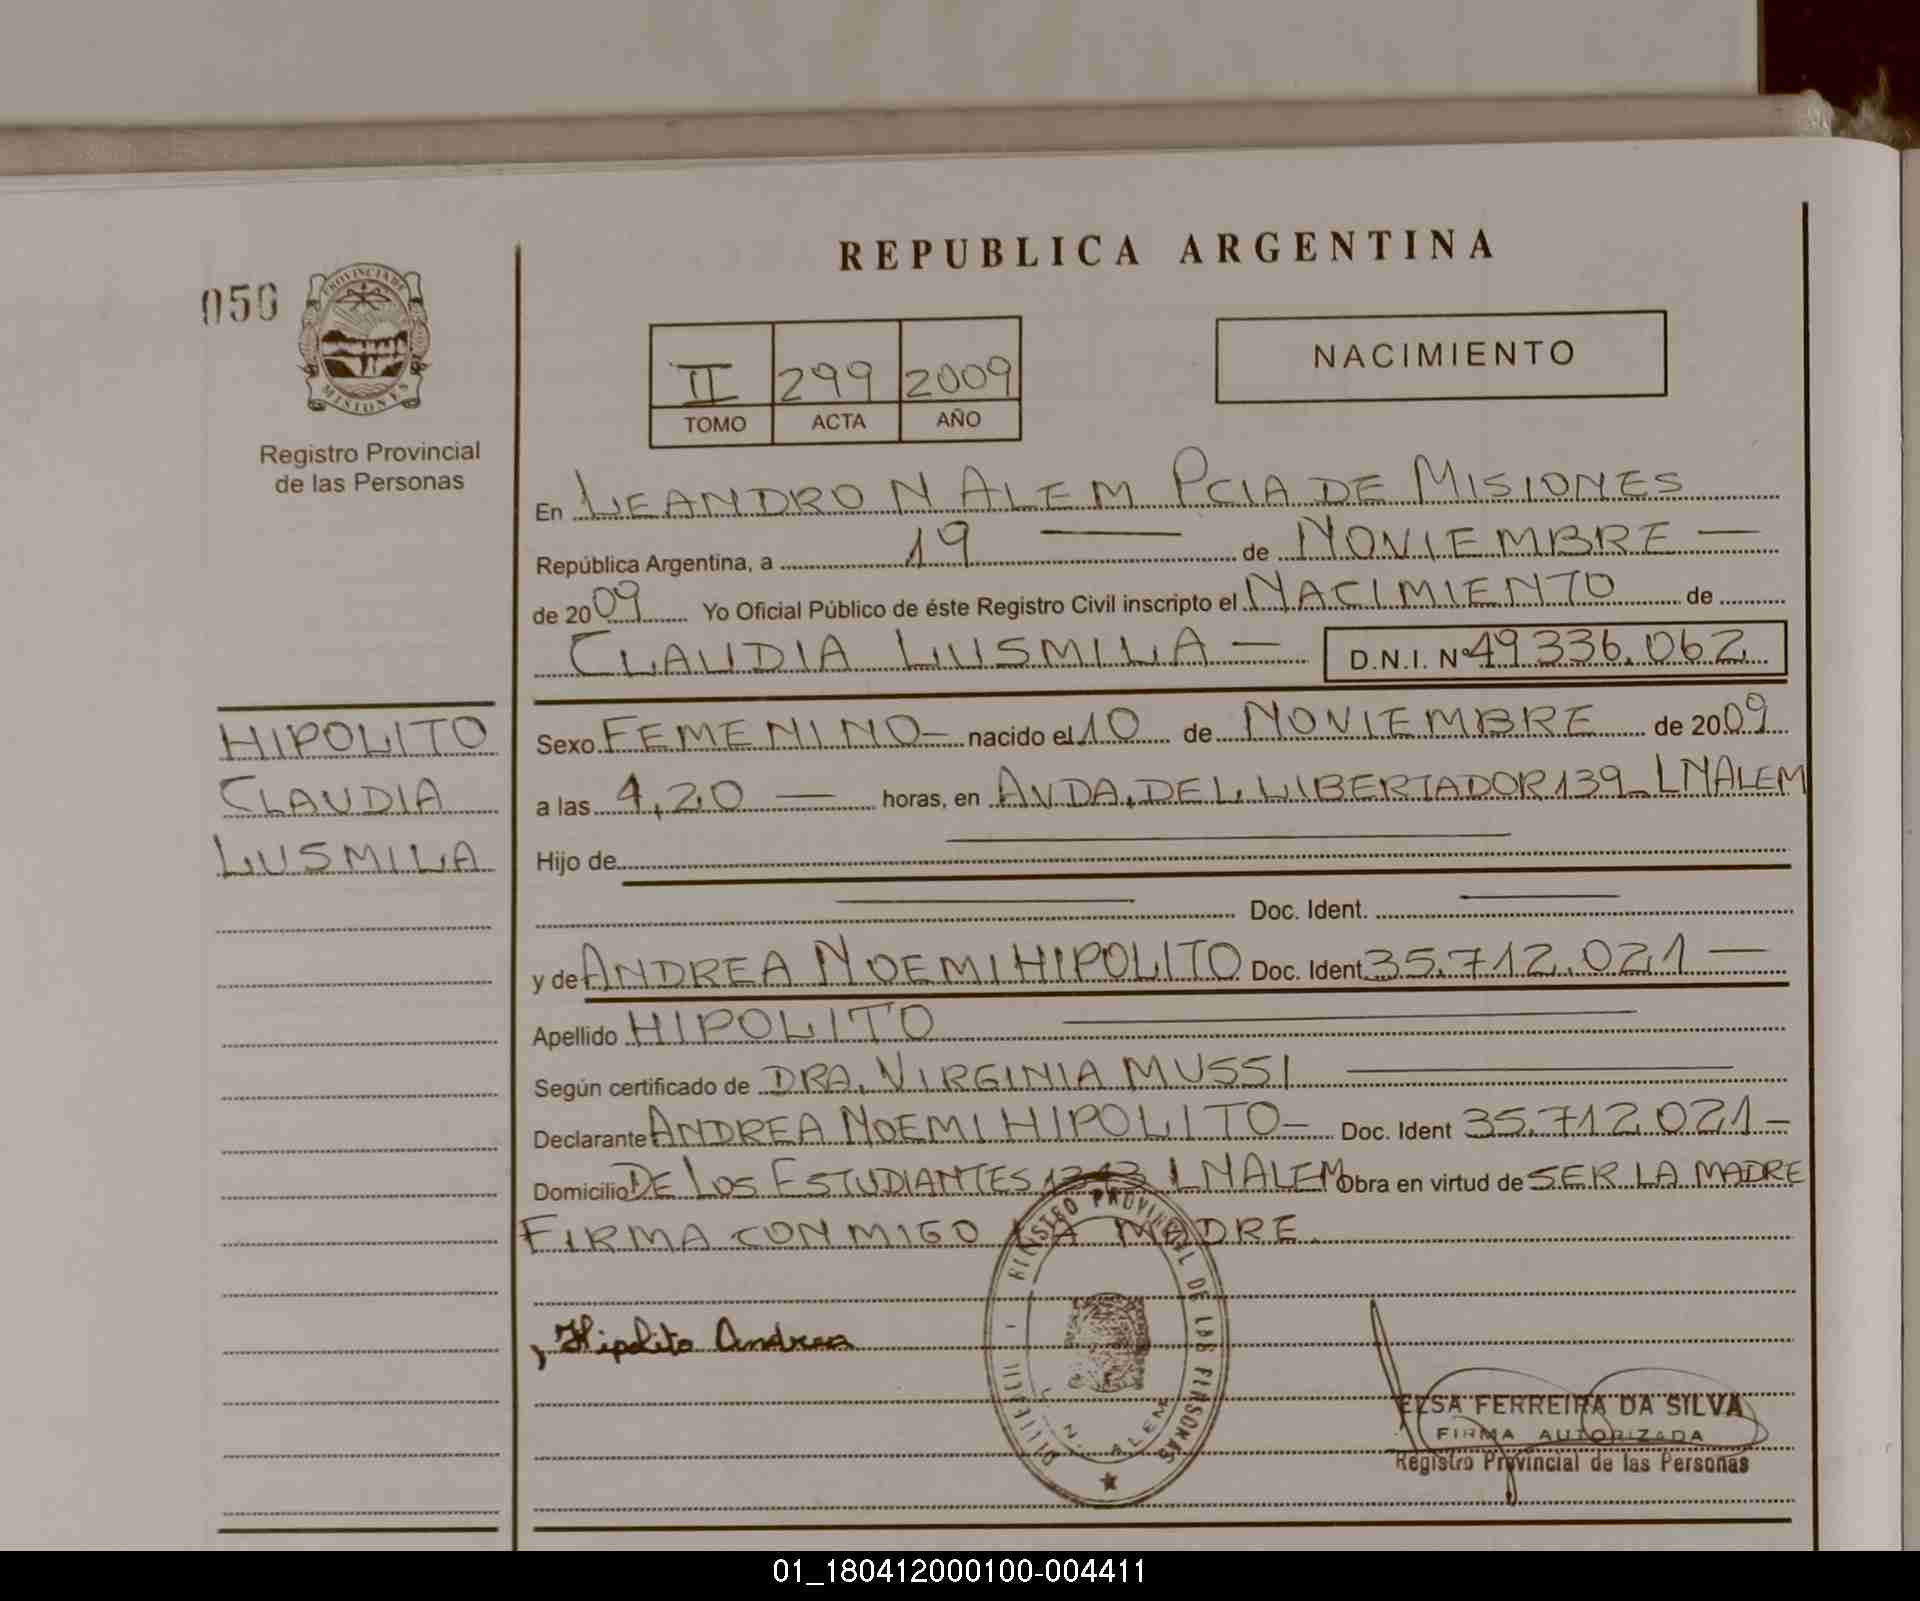 REPUBLICA ARGENTINA
050
PROVINCIA DE
MISIONES
Registro Provincial
de las Personas
NACIMIENTO
II 299 2009
TOMO ACTA AÑO
En LEANDRO N ALEM PCIA DE MISIONES
República Argentina, a 19 — de NOVIEMBRE —
de 2009 Yo Oficial Público de éste Registro Civil inscripto el NACIMIENTO de
CLAUDIA LUSMILA — D.N.I. Nº 49.336.062
HIPOLITO
CLAUDIA
LUSMILA
Sexo FEMENINO — nacido el 10 de NOVIEMBRE de 2009
a las 4,20 — horas, en AVDA. DEL LIBERTADOR 139 _ L N ALEM
Hijo de —
— Doc. Ident. —
y de ANDREA NOEMI HIPOLITO Doc. Ident 35.712.021 —
Apellido HIPOLITO —
Según certificado de DRA. VIRGINIA MUSSI —
Declarante ANDREA NOEMI HIPOLITO — Doc. Ident 35.712.021 —
Domicilio DE LOS ESTUDIANTES L N ALEM Obra en virtud de SER LA MADRE
FIRMA CONMIGO LA MADRE.
PROVINCIAL DE LAS PERSONAS
N. ALEM
Hipolito Andrea
ELSA FERREIRA DA SILVA
FIRMA AUTORIZADA
Registro Provincial de las Personas
01_180412000100-004411